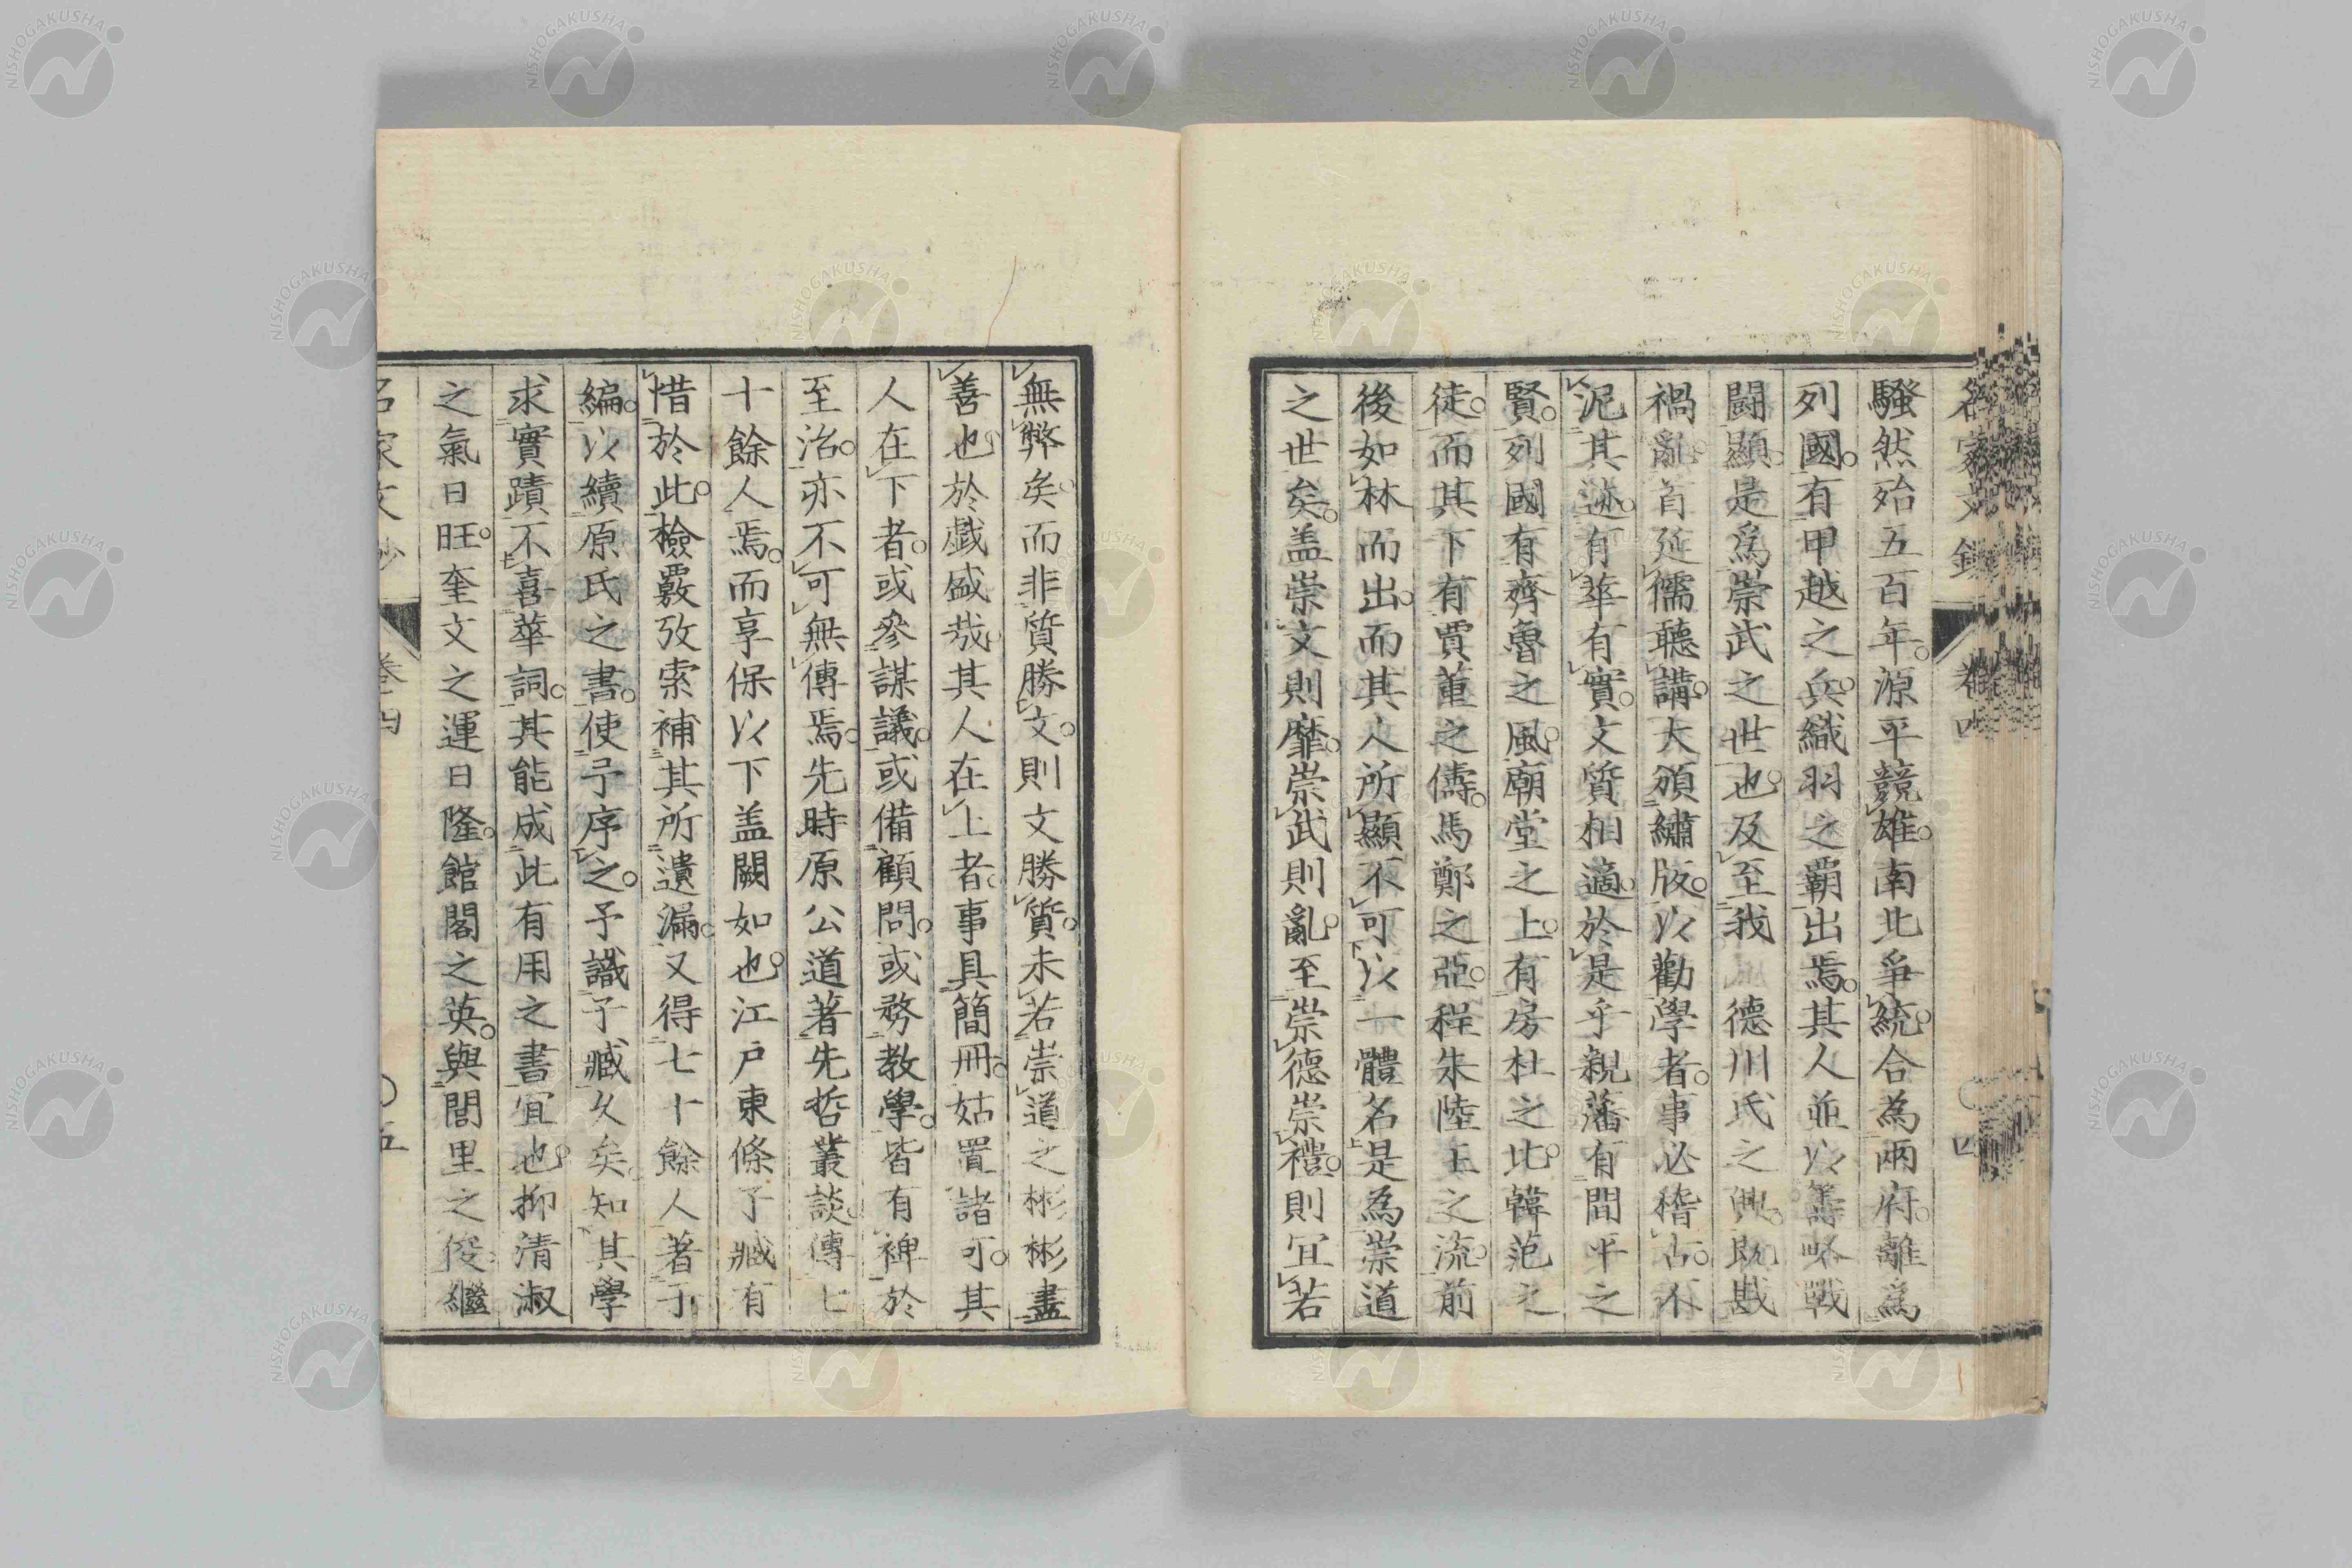 名家文鈔 卷四 四
騷然殆五百年。源平競雄。南北爭統。合為兩府。離爲
列國。有甲越之兵。織羽之霸出焉。其人並以籌略戰
闘顯。是爲崇武之世也。及至我 德川氏之興。既戡
禍亂。首延儒聽講。大頒繡版。以勸學者。事必稽古。不
泥其迹。有華有實。文質相適。於是乎親藩有間平之
賢。列國有齊魯之風。廟堂之上。有房杜之比。韓范之
徒。而其下有賈董之儔。馬鄭之亞。程朱陸王之流。前
後如林而出。而其人所顯不可以一體名。是為崇道
之世矣。盖崇文則靡。崇武則亂。至崇德崇禮。則宜若
無弊矣。而非質勝文。則文勝質。未若崇道之彬彬盡
善也。於戲盛哉。其人在上者。事具簡冊。姑置諸可。其
人在下者。或參謀議。或備顧問。或務教學。皆有裨於
至治。亦不可無傳焉。先時原公道著先哲叢談。傳七
十餘人焉。而享保以下盖闕如也。江戸東條子臧有
惜於此。檢覈攷索補其所遺漏。又得七十餘人著于
編。以續原氏之書。使予序之。予識子臧久矣。知其學
求實蹟不喜華詞。其能成此有用之書宜也。抑清淑
之氣日旺。奎文之運日隆。館閣之英。與閭里之俊。繼
名家文鈔 卷四 〇五
NISHOGAKUSHA